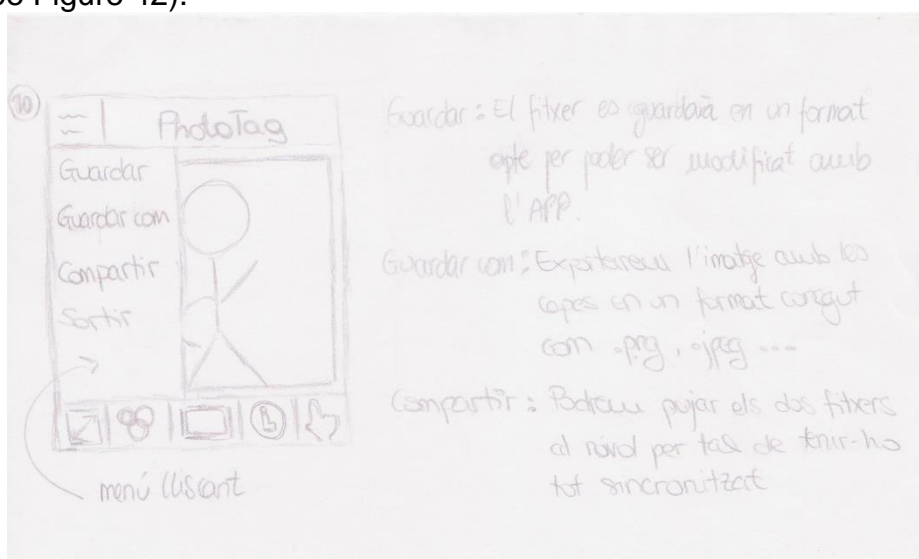 10
PhotoTag
Guardar
Guardar com
Compartir
Sortir
menú lliscant
Guardar: El fitxer es guardarà en un format
apte per poder ser modificat amb
l'APP.
Guardar com: Exportarem l'imatge amb les
capes en un format conegut
com .png, .jpeg ...
Compartir: Podreu pujar els dos fitxers
al núvol per tal de tenir-ho
tot sincronitzat